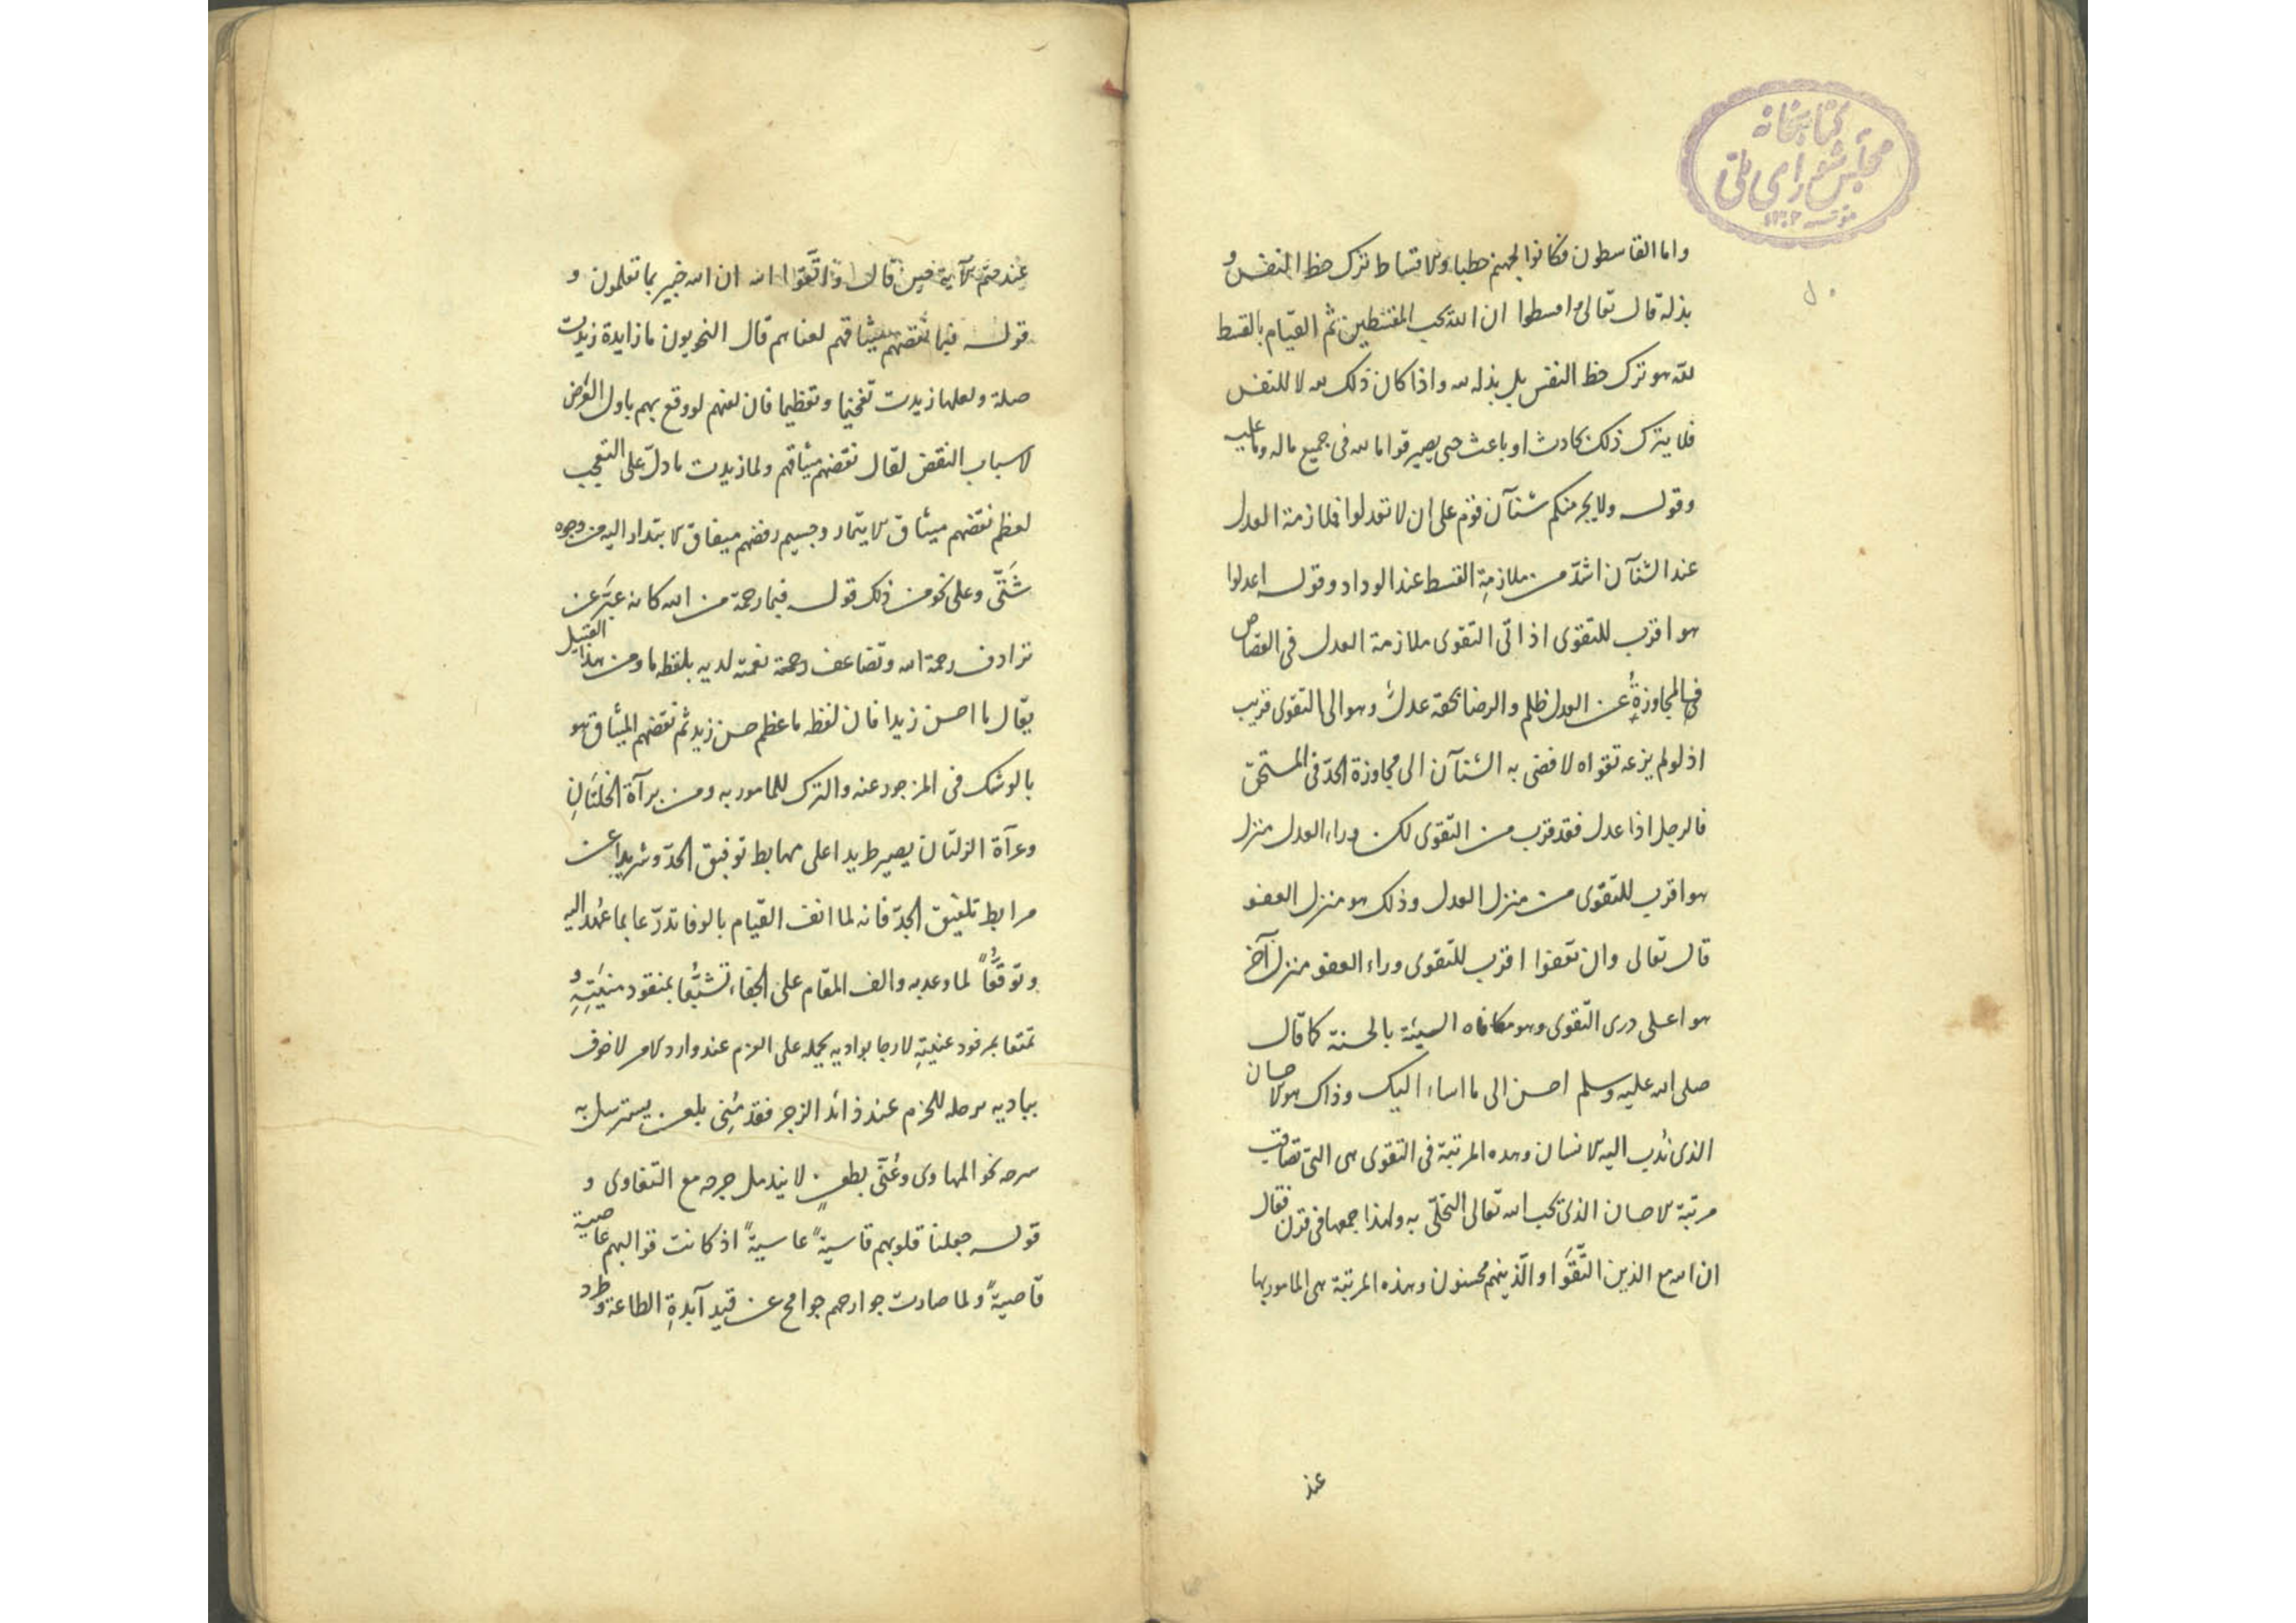 كتابخانه
مجلس شورای ملی
واما القاسطون فكانوا لجهنم حطبا والاقساط ترك حظ النفس و
بذله قال تعالى واقسطوا ان الله يحب المقسطين ثم القيام بالقسط
لله هو ترك حظ النفس بل بذله لله واذا كان ذلك لله لا للنفس
فلا يترك ذلك بحادث او باعث حتى يصير قواما لله فى جميع ماله وما عليه
وقوله ولا يجرمنكم شنآن قوم على ان لا تعدلوا فملازمة العدل
عند الشنآن اشدّ من ملازمة القسط عند الوداد وقوله اعدلوا
هو اقرب للتقوى اذ اتى التقوى ملازمة العدل فى القصاص
فالمجاوزة عن العدل ظلم والرضا بحقه عدل وهو الى التقوى قريب
اذ لو لم يزعه تقواه لافضى به الشنآن الى مجاوزة الحدّ فى المستحق
فالرجل اذا عدل فقد قرب من التقوى لكن وراء العدل منزل
هو اقرب للتقوى من منزل العدل وذلك هو منزل العفو
قال تعالى وان تعفوا اقرب للتقوى وراء العفو منزل آخر
هو اعلى درى التقوى وهو مكافاه السيئة بالحسنة كما قال
صلى الله عليه وسلم احسن الى ما اساء اليك وذاك هو الاحسان
الذى نُدب اليه الانسان وهذه المرتبة فى التقوى هى التى تصاقب
مرتبة الاحسان الذى يحب الله تعالى التحلّى به ولهذا جمعها فى قرن فقال
ان الله مع الذين اتَّقَوا والّذينهم محسنون وهذه المرتبة هى المامور بها
عند
عند ختم الآية حين قال واتَّقوا الله ان الله خبير بما تعلمون و
قوله فبما نقضهم ميثاقهم لعناهم قال النحويون ما زايدة زيدت
صلة ولعلها زيدت تفخيما وتعظيما فان لعنهم لو وقع بهم باول العرض
لاسباب النقض لقال نقضهم ميثاقهم ولما زيدت ما دلّ على التعجب
لعظم نقضهم ميثاق لا يتمار وجسيم رفضهم ميفاق لا يتدارا اليه من وجوه
شَتّى وعلى نحو من ذلك قوله فبما رحمة من الله كانه عبّر عن
ترادف رحمة الله وتضاعف رحمة نعمته لديه بلفظه ما ومن هذا القبيل
يقال ما احسن زيدا فان لفظه ما عظم حسن زيد ثم نقضهم الميثاق هو
بالوشك فى المزجور عنه والترك للمامور به ومن برآة الخلتانِ
وعرآة الزلتان يصير طريدا على مهابط توفيق الحدّ وشريدا عن
مرابط تلفيق الجدّ فانه لما انف القيام بالوفا تدرّعا بما عُهد اليه
وتوقّعًا لما وعد به والف المقام على الجفاء تشبّعًا بمنقود منيّتِهِ و
تمتعا بمرفود عنيتِهِ لا رجا بواديه يحمله على العزم عند وارد الامر لا خوف
بباديه يرحله للحزم عند ذائد الزجر فقد مُنِى بلعن يسترسل به
سرحه نحو المهاوى وعُنّى بطعن لا يندمل جرحه مع التفاوى و
قوله جعلنا قلوبهم قاسيةً عاسيةً اذ كانت قوالبهم عاصية
قاصيةً ولما صارت جوارحهم جوامح عن قيد آبدةِ الطاعة وطرد